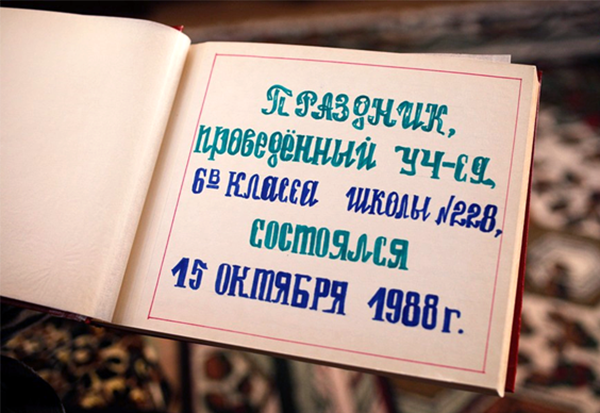 ПРАЗДНИК,
проведённый УЧ-ся
6в КЛАССА ШКОЛЫ №228,
СОСТОЯЛСЯ
15 ОКТЯБРЯ 1988 г.